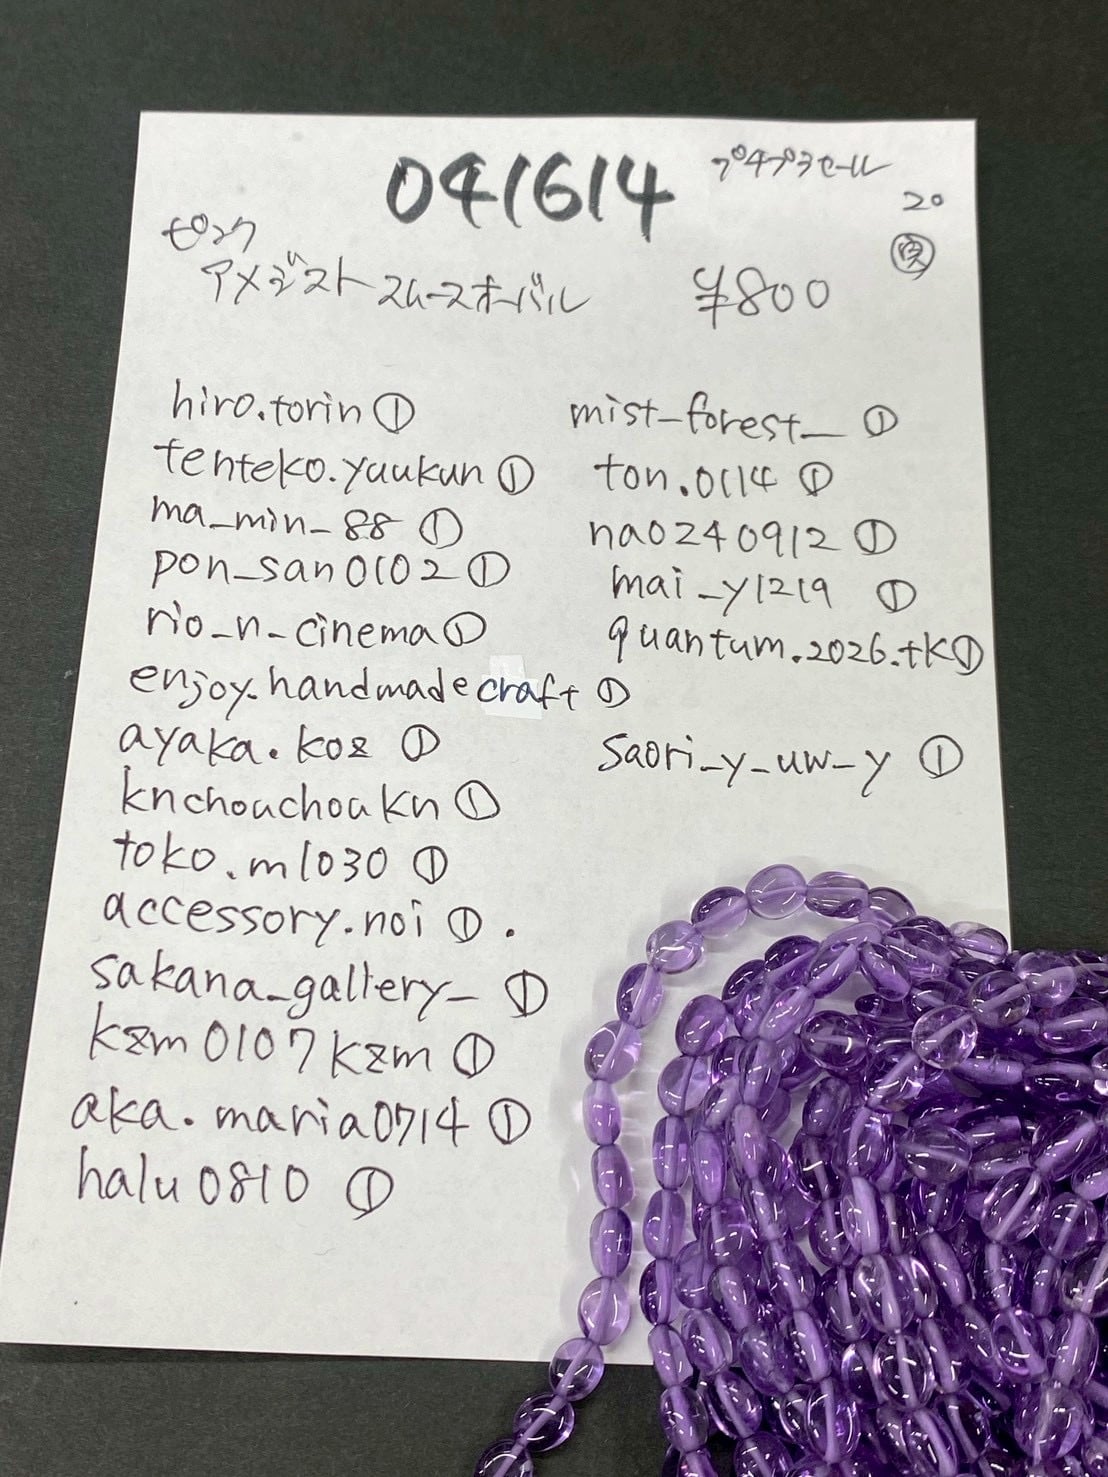 041614
プチプラセール
20
ピンク
アメジストスムースオーバル ¥800
hiro.torin ①
tenteko.yuukun ①
ma_min_88 ①
pon_san0102 ①
rio_n_cinema ①
enjoy.handmadecraft ①
ayaka.koz ①
knchouchoukn ①
toko.m1030 ①
accessory.noi ①.
sakana_gallery_ ①
kzm0107kzm ①
aka.maria0714 ①
halu0810 ①
mist_forest_ ①
ton.0114 ①
na0240912 ①
mai_y1219 ①
quantum.2026.tk①
saori_y_uw_y ①